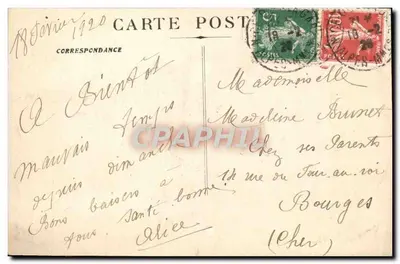 CARTE POST
CORRESPONDANCE
18 février 1920
A Bientôt
mauvais temps
depuis dimanche
Bons baisers à
tous. Santé bonne.
Alice
Mademoiselle
Madeleine Brunet
Chez ses Parents
rue du Four au roi
Bourges
(Cher)
CPAPHIL